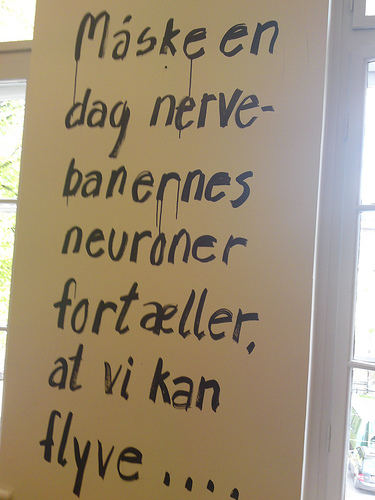 Måske en
dag nerve-
banernes
neuroner
fortæller,
at vi kan
flyve ....